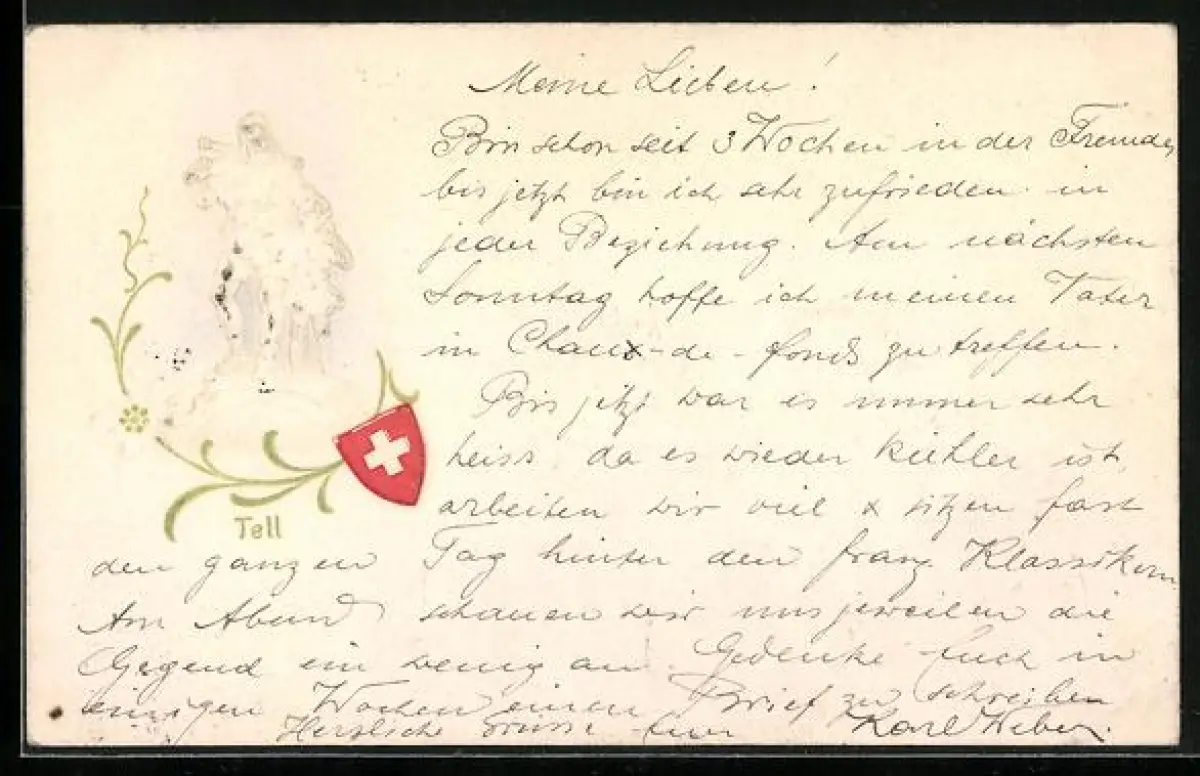 Meine Lieben!
Bin schon seit 3 Wochen in der Fremde,
bis jetzt bin ich sehr zufrieden in
jeder Beziehung. Am nächsten
Sonntag hoffe ich meinen Vater
in Chaux-de-fonds zu treffen.
Bis jetzt war es immer sehr
heiss, da es wieder kühler ist,
arbeiten wir viel & sitzen fast
den ganzen Tag hinter den franz. Klassikern
Am Abend schauen wir uns jeweilen die
Gegend ein wenig an. Gedenke Euch in
einigen Wochen einen Brief zu schreiben
Herzliche Grüsse Euer Karl Weber.
Tell